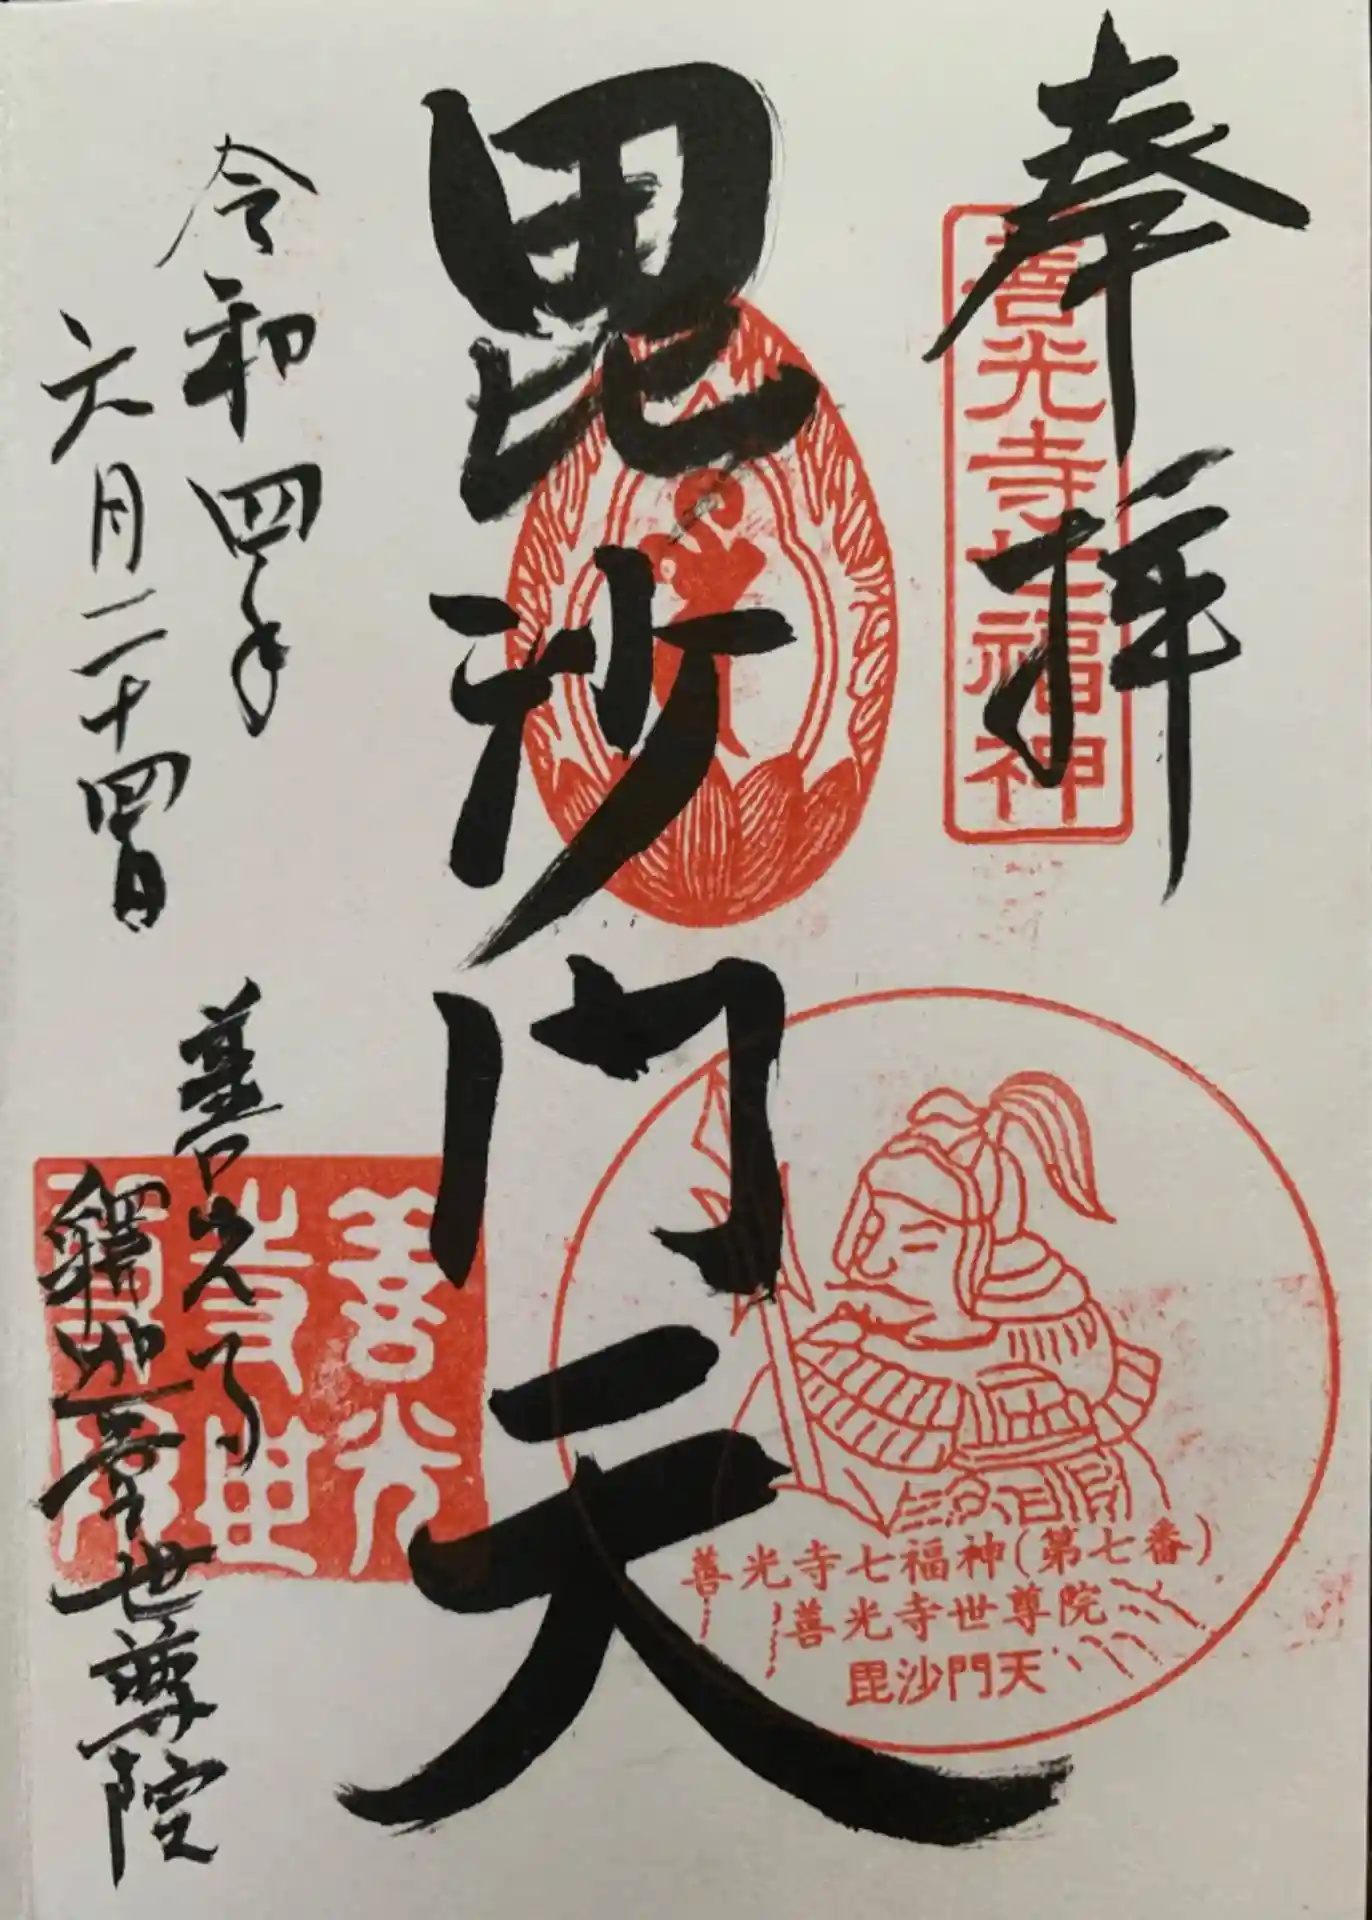 奉拝
善光寺七福神
毘沙門天
善光寺七福神(第七番)
善光寺世尊院
毘沙門天
令和四年
六月二十四日
善光寺
釋迦堂世尊院
善光
寺世
尊院